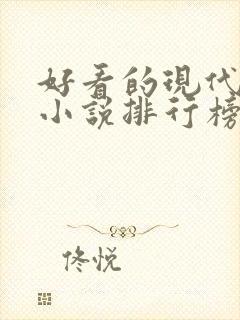 好看的現代
小說排行榜
佟悦